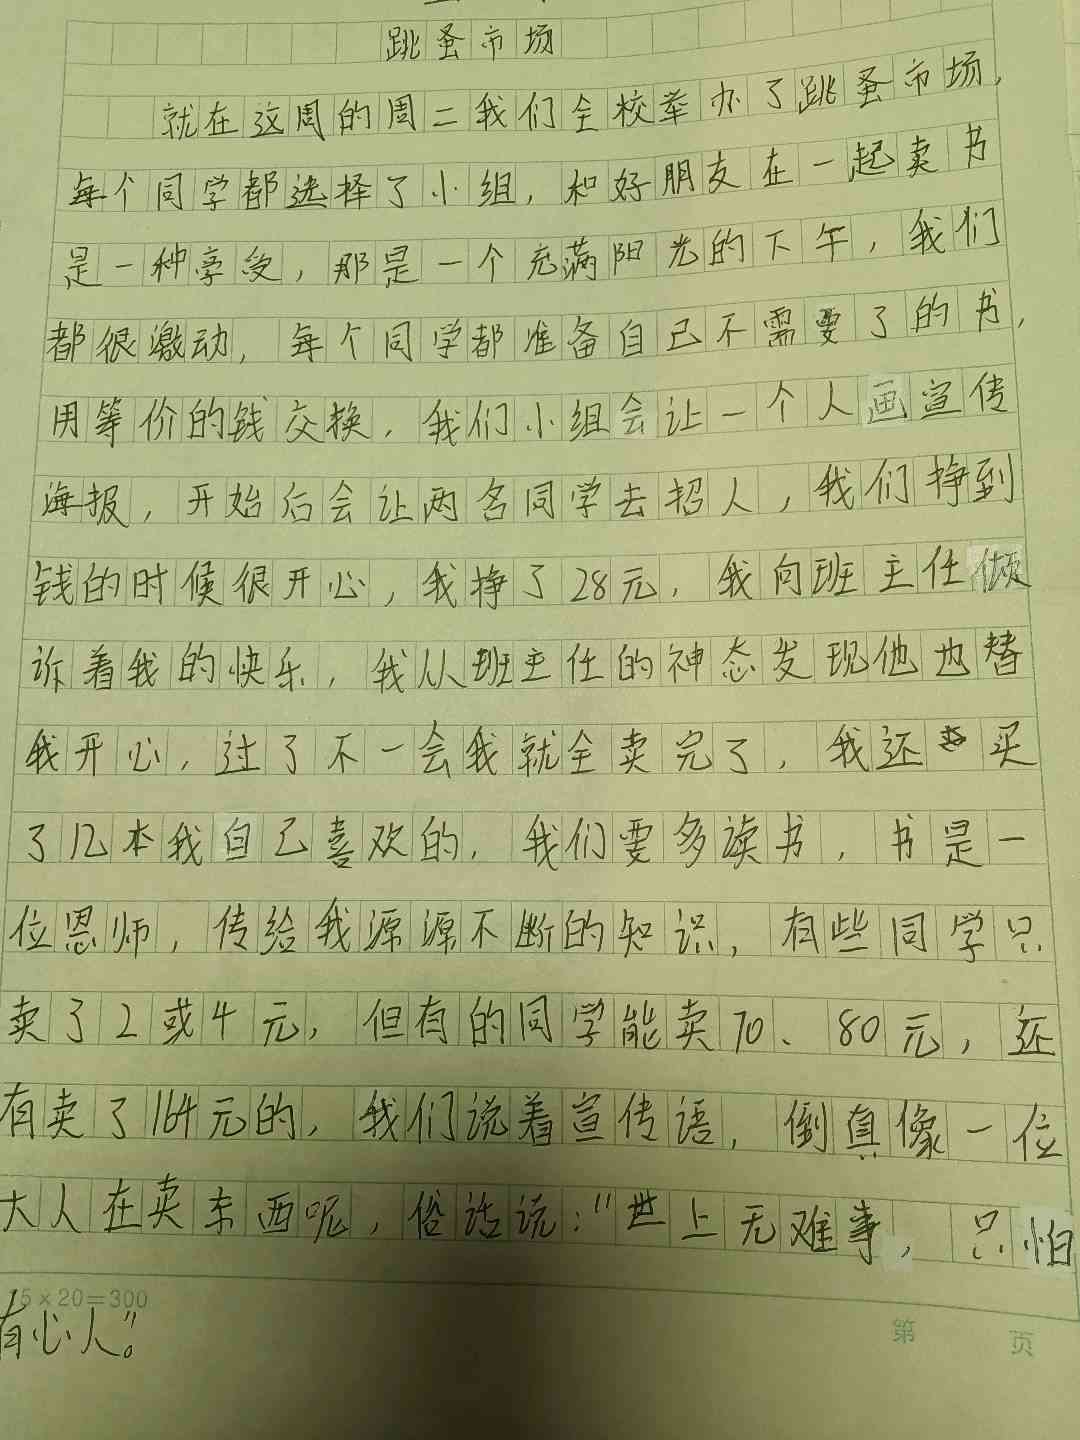 跳蚤市场
就在这周的周二我们全校举办了跳蚤市场，
每个同学都选择了小组，和好朋友在一起卖书
是一种享受，那是一个充满阳光的下午，我们
都很激动，每个同学都准备自己不需要了的书，
用等价的钱交换，我们小组会让一个人画宣传
海报，开始后会让两名同学去招人，我们挣到
钱的时候很开心，我挣了28元，我向班主任倾
诉着我的快乐，我从班主任的神态发现他也替
我开心，过了不一会我就全卖完了，我还买
了几本我自己喜欢的，我们要多读书，书是一
位恩师，传给我源源不断的知识，有些同学只
卖了2或4元，但有的同学能卖70、80元，还
有卖了164元的，我们说着宣传语，倒真像一位
大人在卖东西呢，俗话说："世上无难事，只怕
15×20=300
有心人"。
第 页